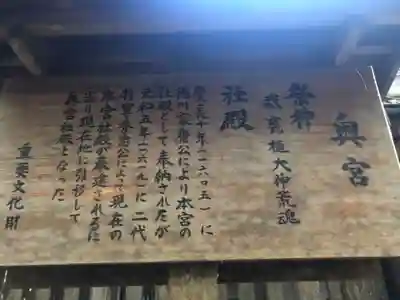 奥宮
祭神 武甕槌大神荒魂
社殿
慶長十年(一六〇五)に
徳川家康公により本宮の
社殿として奉納されたが
元和五年(一六一九)に二代
将軍秀忠公によって現在の
本宮社殿が奉造されるに
当り現在地に引移して
奥宮社殿となった
重要文化財